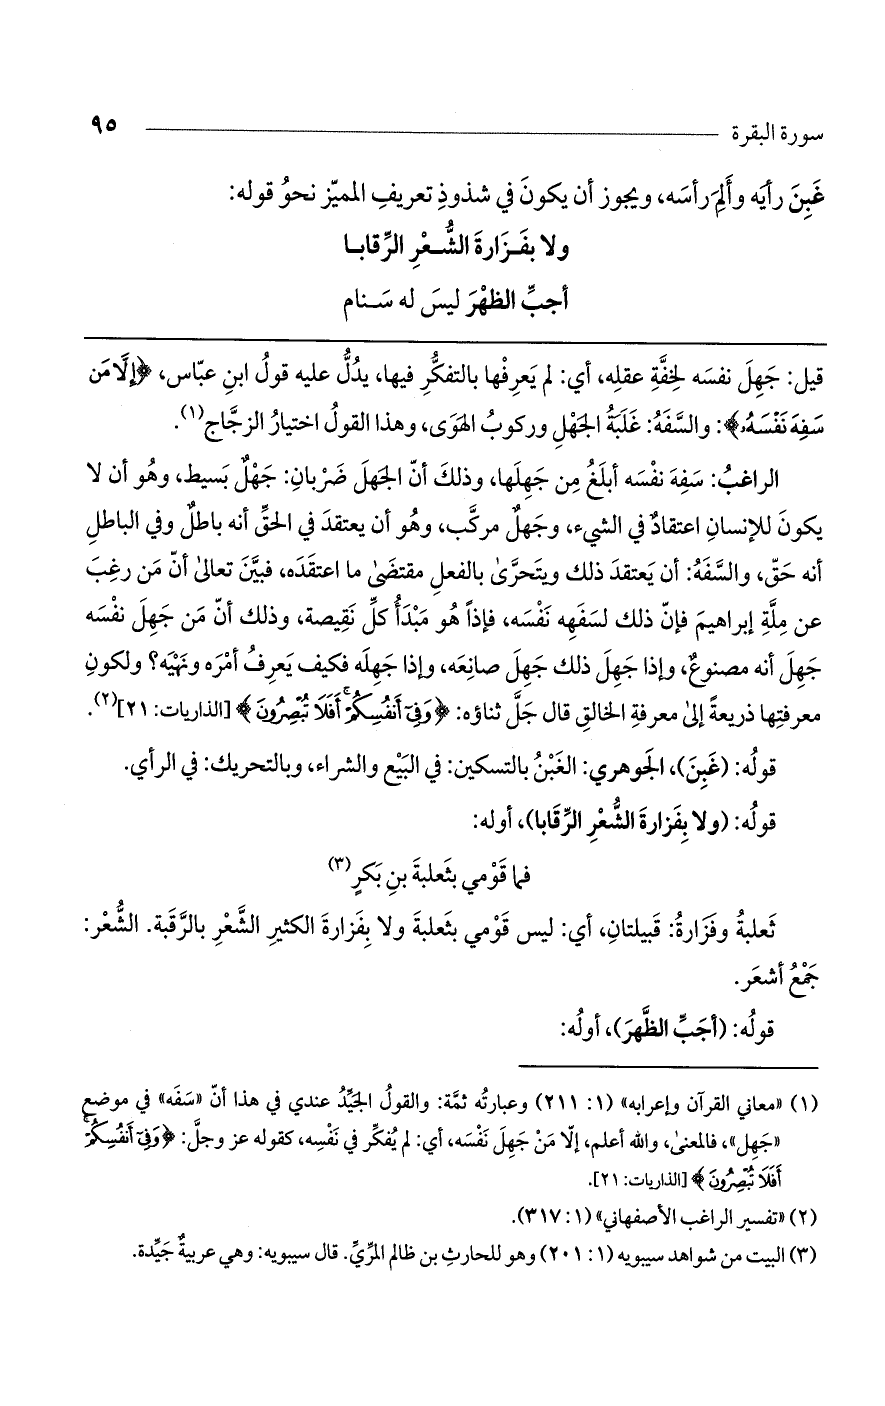 سورة البقرة ٩٥
غَبِنَ رأيَه وأَلِمَ رأسَه، ويجوز أن يكونَ في شذوذِ تعريفِ المميّز نحوُ قوله:
ولا بفَـزَارةَ الشُّعْرِ الرِّقابـا
أجبِّ الظهْرَ ليسَ له سَـنام
قيل: جَهِلَ نفسَه لِخفَّةِ عقلِه، أي: لم يَعرِفْها بالتفكُّرِ فيها، يدُلُّ عليه قولُ ابنِ عبّاس، ﴿إِلَّا مَن
سَفِهَ نَفْسَهُۥ﴾: والسَّفَهُ: غَلَبَةُ الجَهْلِ وركوبُ الهَوَى، وهذا القولُ اختيارُ الزجَّاج(١).
الراغبُ: سَفِهَ نفْسَه أبلَغُ مِن جَهِلَها، وذلكَ أنّ الجَهلَ ضَرْبانِ: جَهْلٌ بَسيط، وهُو أن لا
يكونَ للإنسانِ اعتقادٌ في الشيء، وجَهلٌ مركَّب، وهُو أن يعتقدَ في الحقِّ أنه باطلٌ وفي الباطلِ
أنه حَقّ، والسَّفَهُ: أن يَعتقدَ ذلك ويتَحرَّىٰ بالفعلِ مقتضَىٰ ما اعتقَدَه، فبيَّنَ تعالىٰ أنّ مَن رغِبَ
عن مِلَّةِ إبراهيمَ فإنّ ذلك لسَفَهِه نَفْسَه، فإذاً هُو مَبْدَأُ كلِّ نَقِيصة، وذلك أنّ مَن جَهِلَ نفْسَه
جَهِلَ أنه مصنوعٌ، وإذا جَهِلَ ذلك جَهِلَ صانِعَه، وإذا جَهِلَه فكيف يَعرِفُ أمْرَه ونَهْيَه؟ ولكونِ
معرفتِها ذريعةً إلىٰ معرفةِ الخالقِ قال جَلَّ ثناؤه: ﴿وَفِىٓ أَنفُسِكُمْ ۚ أَفَلَا تُبْصِرُونَ﴾ [الذاريات: ٢١](٢).
قولُه: (غَبِنَ)، الجَوهري: الغَبْنُ بالتسكين: في البَيْع والشراء، وبالتحريك: في الرأي.
قولُه: (ولا بِفَزارةَ الشُّعْرِ الرِّقَابا)، أوله:
فما قَوْمي بثَعلبةَ بنِ بَكرٍ(٣)
ثَعلبةُ وفَزَارةُ: قَبيلتانِ، أي: ليس قَوْمي بثَعلبةَ ولا بِفَزارةَ الكثيرِ الشَّعْرِ بالرَّقَبة. الشُّعْر:
جَمْعُ أشعَر.
قولُه: (أجَبِّ الظَّهرَ)، أولُه:
(١) «معاني القرآن وإعرابه» (١: ٢١١) وعبارتُه ثمَّة: والقولُ الجَيِّدُ عندي في هذا أنّ «سَفَه» في موضعِ
«جَهِل»، فالمعنىٰ، والله أعلم، إلّا مَنْ جَهِلَ نَفْسَه، أي: لم يُفكِّر في نَفْسِه، كقوله عز وجلَّ: ﴿وَفِىٓ أَنفُسِكُمْ ۚ
أَفَلَا تُبْصِرُونَ﴾ [الذاريات: ٢١].
(٢) «تفسير الراغب الأصفهاني» (١: ٣١٧).
(٣) البيت من شواهد سيبويه (١: ٢٠١) وهو للحارثِ بن ظالم المرِّيِّ. قال سيبويه: وهي عربيةٌ جَيِّدة.